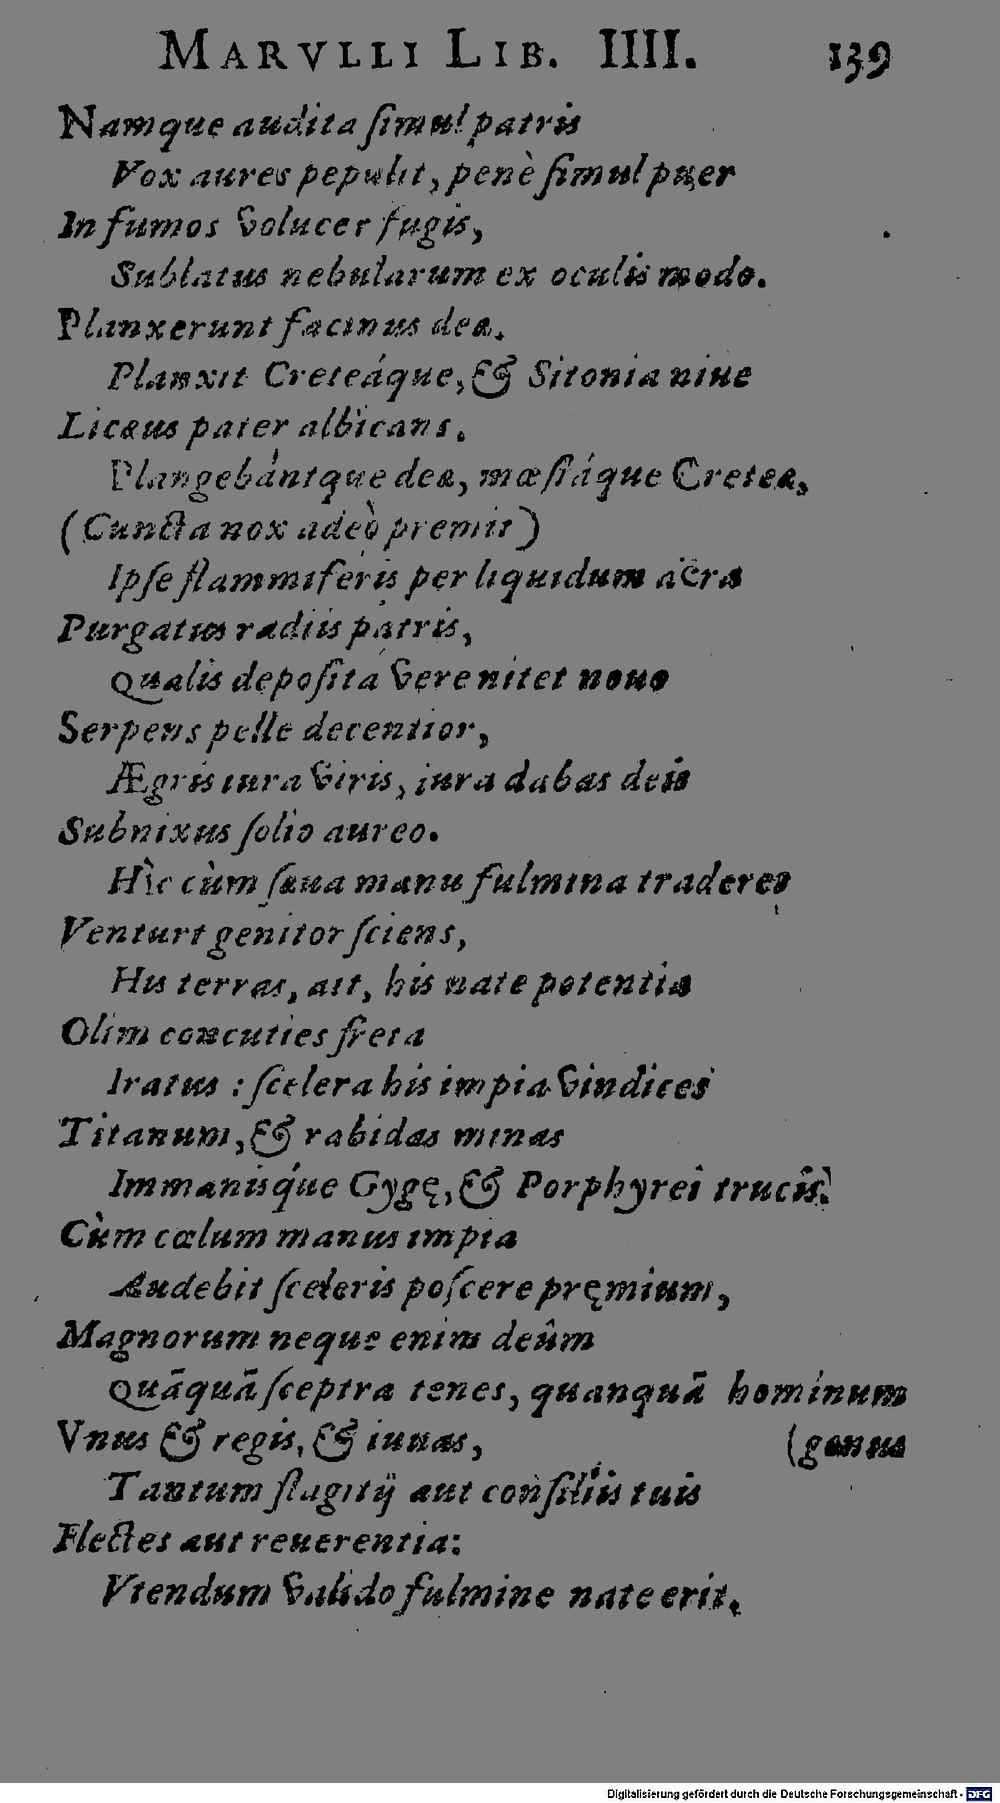 MARVLLI LIB. IIII. 139
Namque audita ſimul patris
Vox aures pepulit, penè ſimul puer
In fumos volucer fugis,
Sublatus nebularum ex oculis modo.
Planxerunt facinus deæ.
Planxit Creteáque, & Sitonia niue
Licæus pater albicans.
Plangebántque deæ, mœſtáque Cretea,
(Cuncta nox adeò premit)
Ipſe flammiferis per liquidum aëra
Purgatus radiis patris,
Qualis depoſita vere nitet nouo
Serpens pelle decentior,
Ægris iura viris, iura dabas deis
Subnixus ſolio aureo.
Hîc cùm ſæua manu fulmina traderes
Venturi genitor ſciens,
His terras, ait, his nate potentia
Olim concuties freta
Iratus : ſcelera his impia vindices
Titanum, & rabidas minas
Immanisq́ue Gygę, & Porphyrei trucis.
Cùm cœlum manus impia
Audebit ſceleris poſcere pręmium,
Magnorum neque enim deûm
Quāquā ſceptra tenes, quanquā hominum
Vnus & regis, & iuuas, (genus
Tantum flagitij aut conſiliis tuis
Flectes aut reuerentia:
Vtendum valido fulmine nate erit.
Digitalisierung gefördert durch die Deutsche Forschungsgemeinschaft - DFG